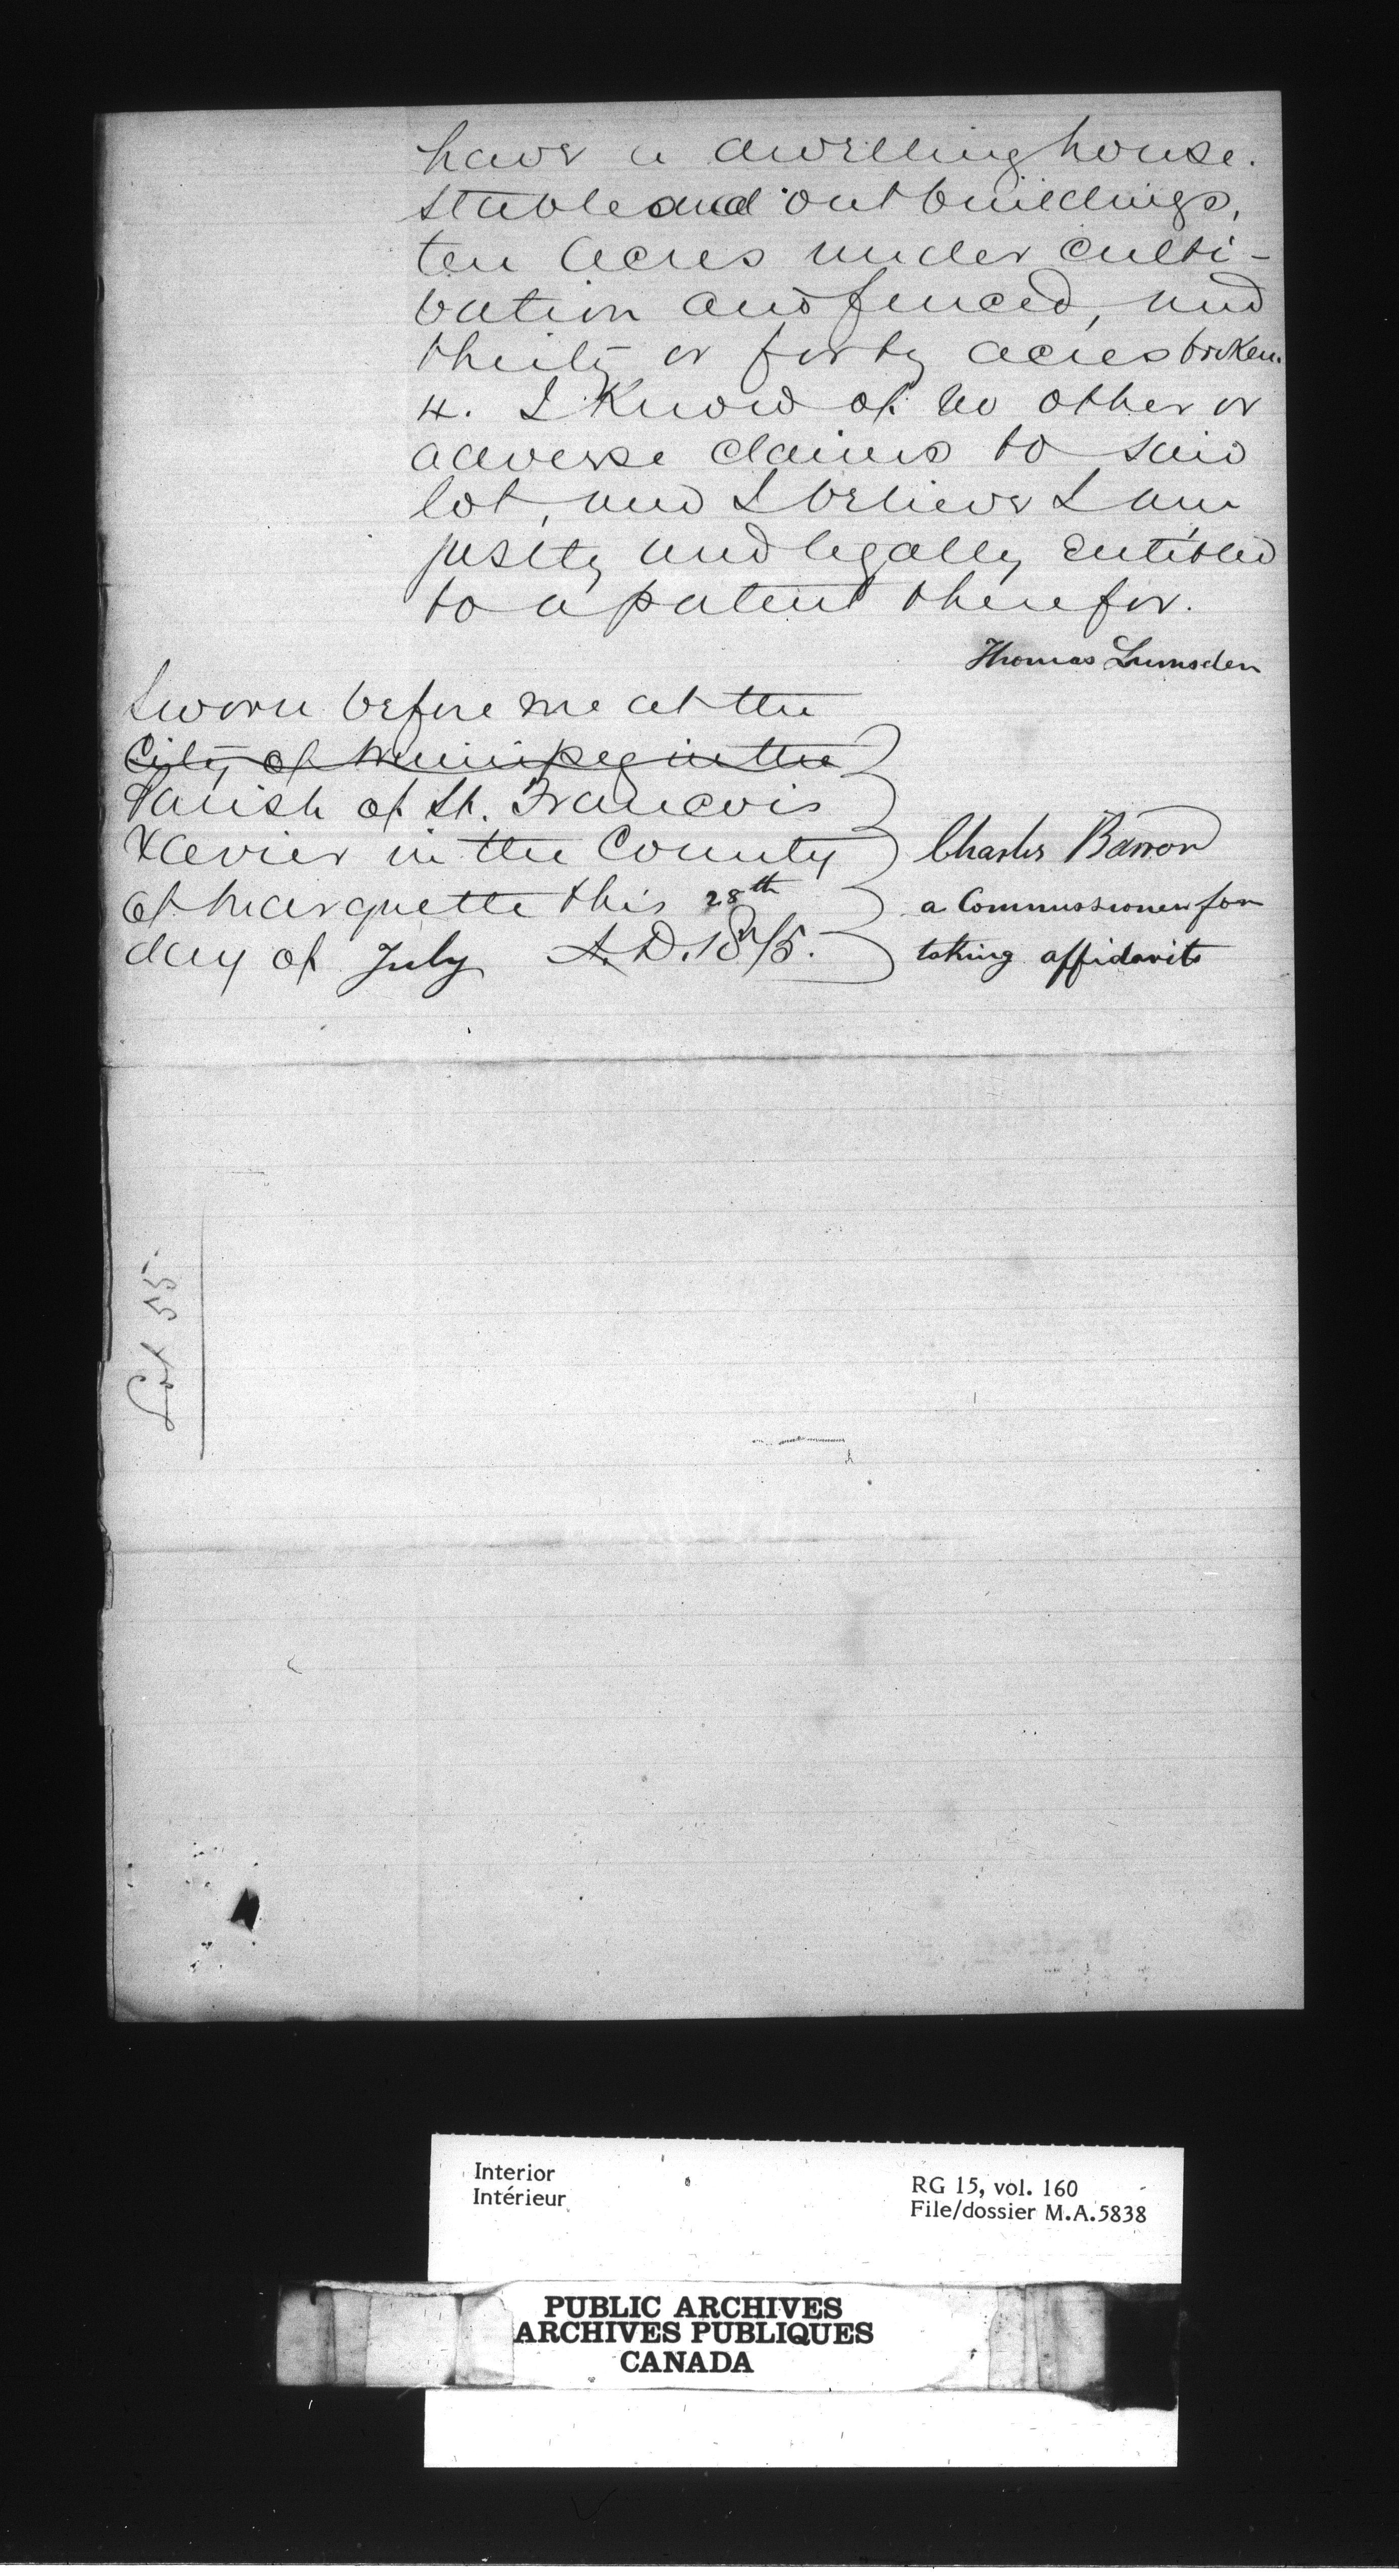 have a dwelling house.
stable and out buildings,
ten acres under culti-
vation and fenced, and
thirty or forty acres broken.
4. I know of no other or
adverse claims to said
lot, and I believe I am
justly and legally entitled
to a patent therefor.
Thomas Lumsden
Sworn before me at the
City of Winnipeg in the
Parish of St. Francois
Xavier in the County
of Marquette this 28th
day of July A.D. 1875.
Charles Barron
a Commissioner for
taking affidavits
Lot 55.
Interior
Intérieur
RG 15, vol. 160
File/dossier M.A.5838
PUBLIC ARCHIVES
ARCHIVES PUBLIQUES
CANADA